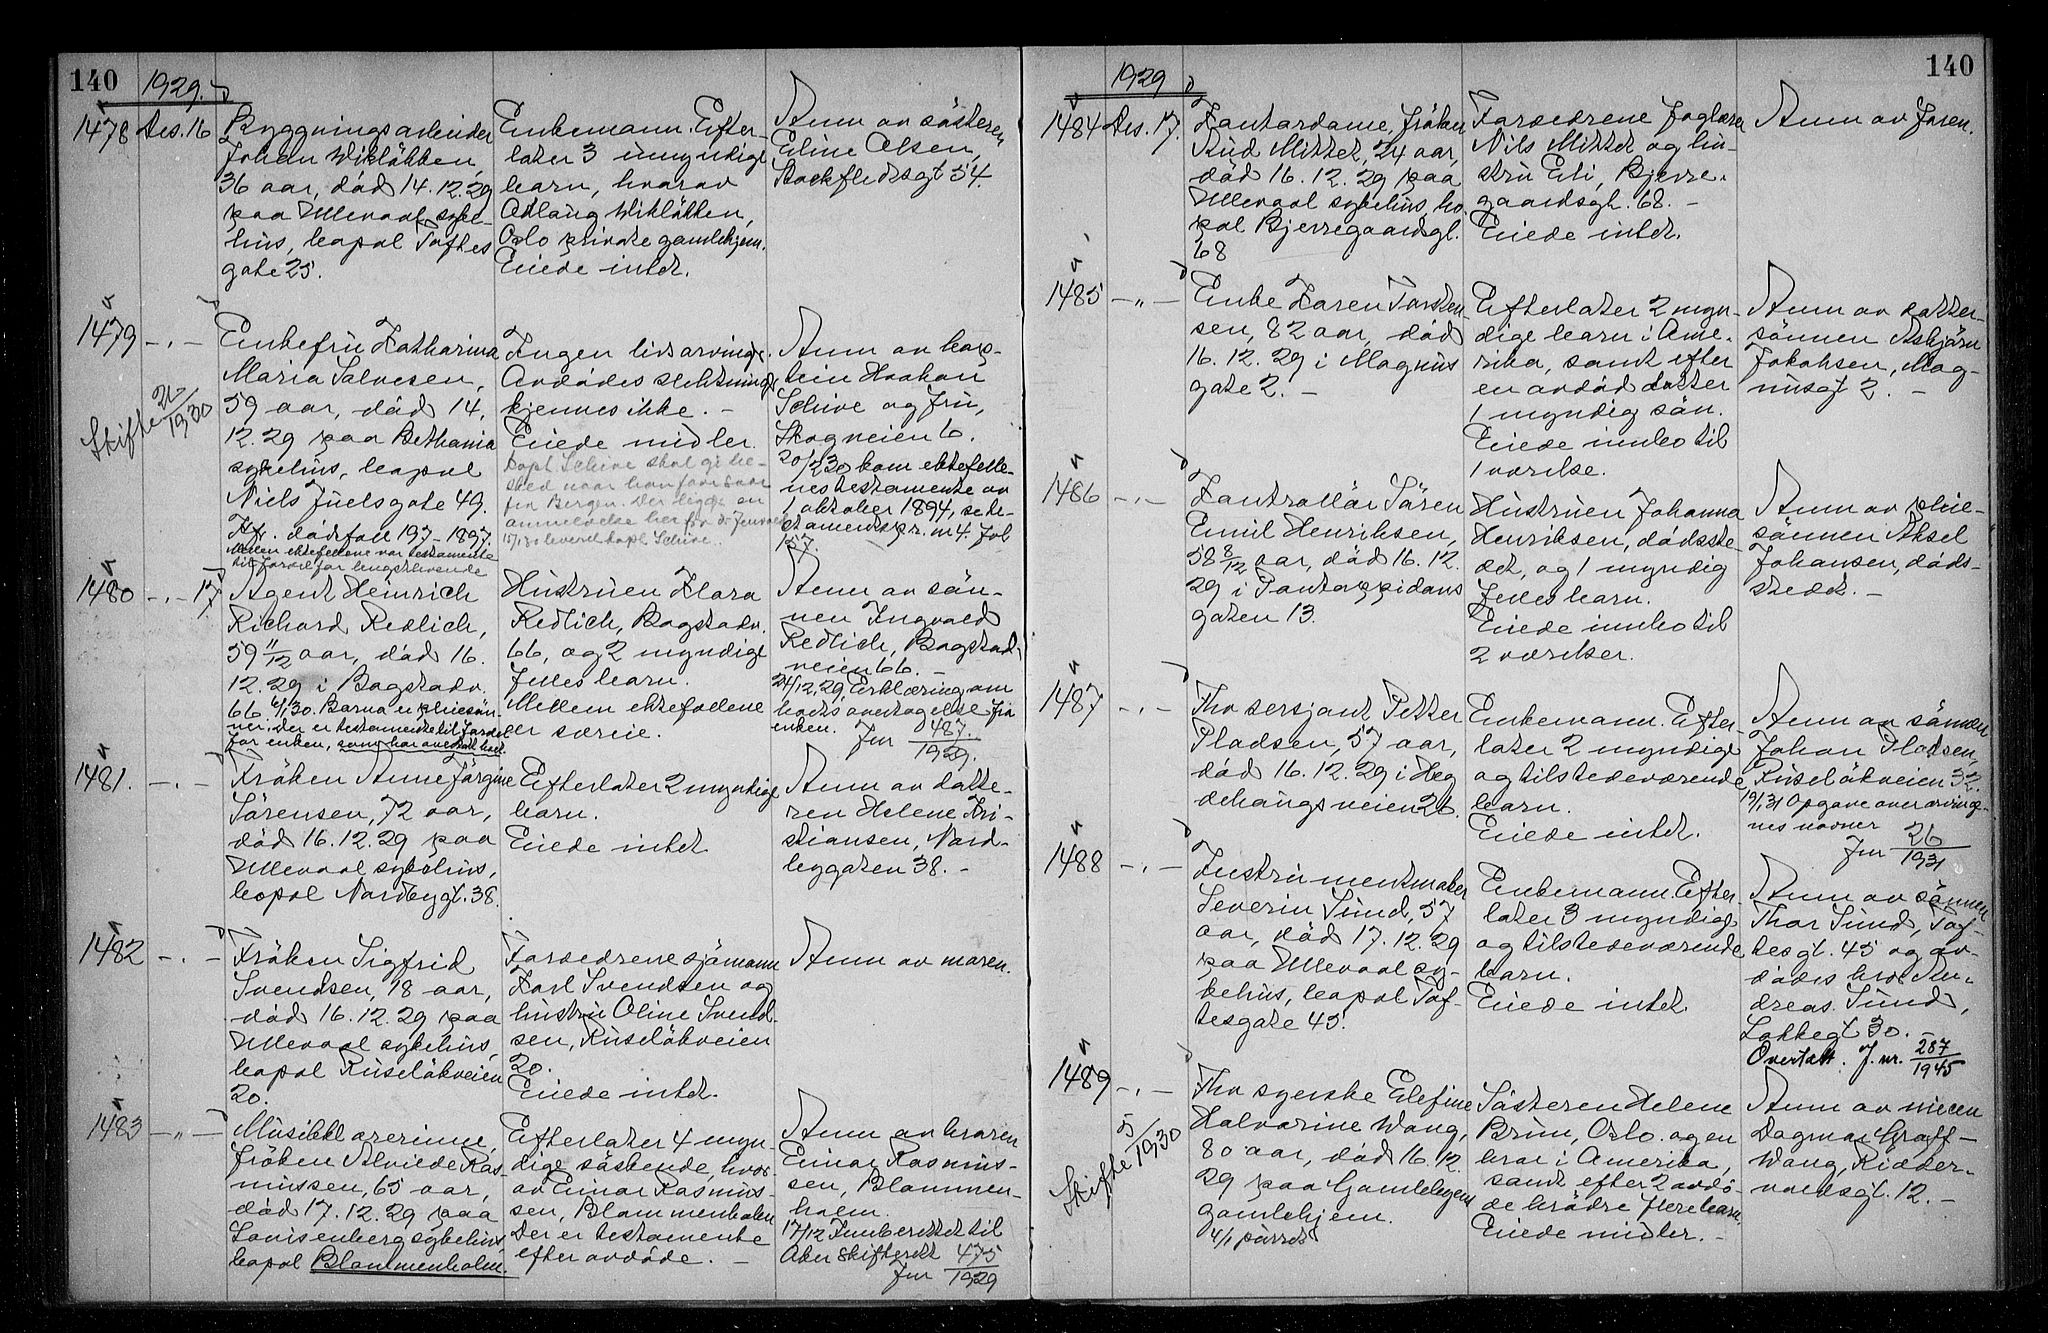 140
1929.
1478 Des. 16
Byggningsarbeider
Johan Wikløkken,
36 aar, död 14.12.29
paa Ullevaal syke-
hus, bopal Toftes
gate 25.
Enkemann. Efter-
later 3 umyndige
barn, hvorav
Adlaug Wikløkken,
Oslo private gamlehjem.
Eiede intet.
Anm av søsteren
Eline Olsen,
Stockfledtsgt 54.
1479 -"-
Skifte 2/1930
Enkefru Katharina
Maria Salvesen,
59 aar, död 14.
12.29 paa Bethania
sykehus, bopal
Niels Juelsgate 49.
Kfr. dødsfall 197-1897.
Mellem ektefellene var testamente
til fordel for lengstlevende
Ingen livsarvinge.
Avdödes slektninge
kjennes ikke. -
Eiede midler.
Kapt. Schive skal gi be-
sked naar han faar svar
fra Bergen. Der ligger en
anmeldelse her for
levert kapt. Schive.
Anm av kap-
tein Haakon
Schive og fru,
Skogveien 6.
20/12 30 kom ektefelle-
nes testamente av
1 oktober 1894, se te-
stamentspr. nr 4. fol
157.
1480 -"- 17.
Agent Heinrich
Richard Redlich,
59 11/12 aar, död 16.
12.29 i Bogstadv.
66. 6/1 30. Barna er pleiesøn-
ner. Der er testamente til fordel
for enken, som har overtatt boet.
Hustruen Klara
Redlich, Bogstadv.
66, og 2 myndige
felles barn.
Mellem ektefellene
er særeie.
Anm av søn-
nen Ingvald
Redlich, Bogstad-
veien 66. -
24/12.29. Erklæring om
boets overtagelse fra
enken. Jnr 487/1929.
1481. -"-
Frøken Anne Jørgine
Sørensen, 72 aar,
död 16.12.29 paa
Ullevaal sykehus,
bopal Nordbygt. 38.
Efterlater 2 myndige
barn.
Eiede intet
Anm av datte-
ren Helene Kri-
stiansen, Nord-
bygaten 38. -
1482 -"-
Frøken Sigfrid
Svendsen, 18 aar,
död 16.12.29 paa
Ullevaal sykehus,
bopal Ruseløkveien
20.
Forældrene sjømann
Karl Svendsen og
hustru Oline Svend-
sen, Ruseløkveien
20.
Eiede intet.
Anm av moren.
1483 -"-
Musikklærerinne,
frøken Alvilde Ras-
mussen, 65 aar,
död 17.12.29 paa
Lovisenberg sykehus
bopal Blommenholm.
Efterlater 4 myn-
dige søskende, hvor-
av Einar Rasmus-
sen, Blommenholm
Der er testamente
efter avdøde. -
Anm av broren
Einar Rasmus-
sen, Blommen-
holm.
17/12 Innberettet til
Aker skifterett 475/1929
Jnr
140
1929
1484 Des. 17.
Kontordame, frøken
Rud Mittet, 24 aar,
död 16.12.29 paa
Ullevaal sykehus, bo
pal Bjerregaardsgt.
68
Forældrene faglærer
Nils Mittet og hu-
stru Eli, Bjerre-
gaardsgt. 68. -
Eiede intet.
Anm av faren.
1485 -"-
Enke Karen Torsten
sen, 82 aar, död
16.12.29 i Magnus
gate 2. -
Efterlater 2 myn-
dige barn i Ame-
rika, samt efter
en avdöd datter
1 myndig søn.
Eiede innbo til
1 værelse.
Anm av datter-
sønnen Asbjørn
Jakobsen, Mag-
nusgt 2. -
1486 -"-
Kontrollør Søren
Emil Henriksen,
58 8/12 aar, död 16.12.
29 i Pontoppidans
gaten 13.
Hustruen Johanna
Henriksen, dødsste-
det, og 1 myndig
felles barn.
Eiede innbo til
2 værelser.
Anm av pleie-
sønnen Aksel
Johansen, døds-
stedet. -
1487 -"-
Fhv sersjant Petter
Pladsen, 57 aar,
död 16.12.29 i Heg
dehaugsveien 26.
Enkemann. Efter-
later 2 myndige
og tilstedeværende
barn.
Eiede intet.
Anm av sønnen
Johan Pladsen,
Ruseløkveien 32.
19/1 31 Opgave over arvinge-
nes navner
Jnr 26/1931
1488 -"-
Instrumentmaker
Severin Sund, 57
aar, död 17.12.29
paa Ullevaal sy-
kehus, bopal Tof-
tesgate 45.
Enkemann. Efter-
later 3 myndige
og tilstedeværende
barn.
Eiede intet
Anm av sønnen
Thor Sund, Tof-
tesgt. 45 og av-
dødes bror An-
dreas Sund,
Lakkegt 30. -
Overtatt. J.nr. 287/1945
1489 -"-
Skifte 5/1930
Fhv syerske Elefine
Halvorine Wang,
80 aar, död 16.12.
29 paa Gamlebyen
gamlehjem.
4/1 påsett
Søsteren Helene
Brun, Oslo. og en
bror i Amerika,
samt efter 2 avdø-
de brødre flere barn.
Eiede midler. -
Anm av niecen
Dagmar Graff-
Wang, Ridder-
voldsgt. 12. -